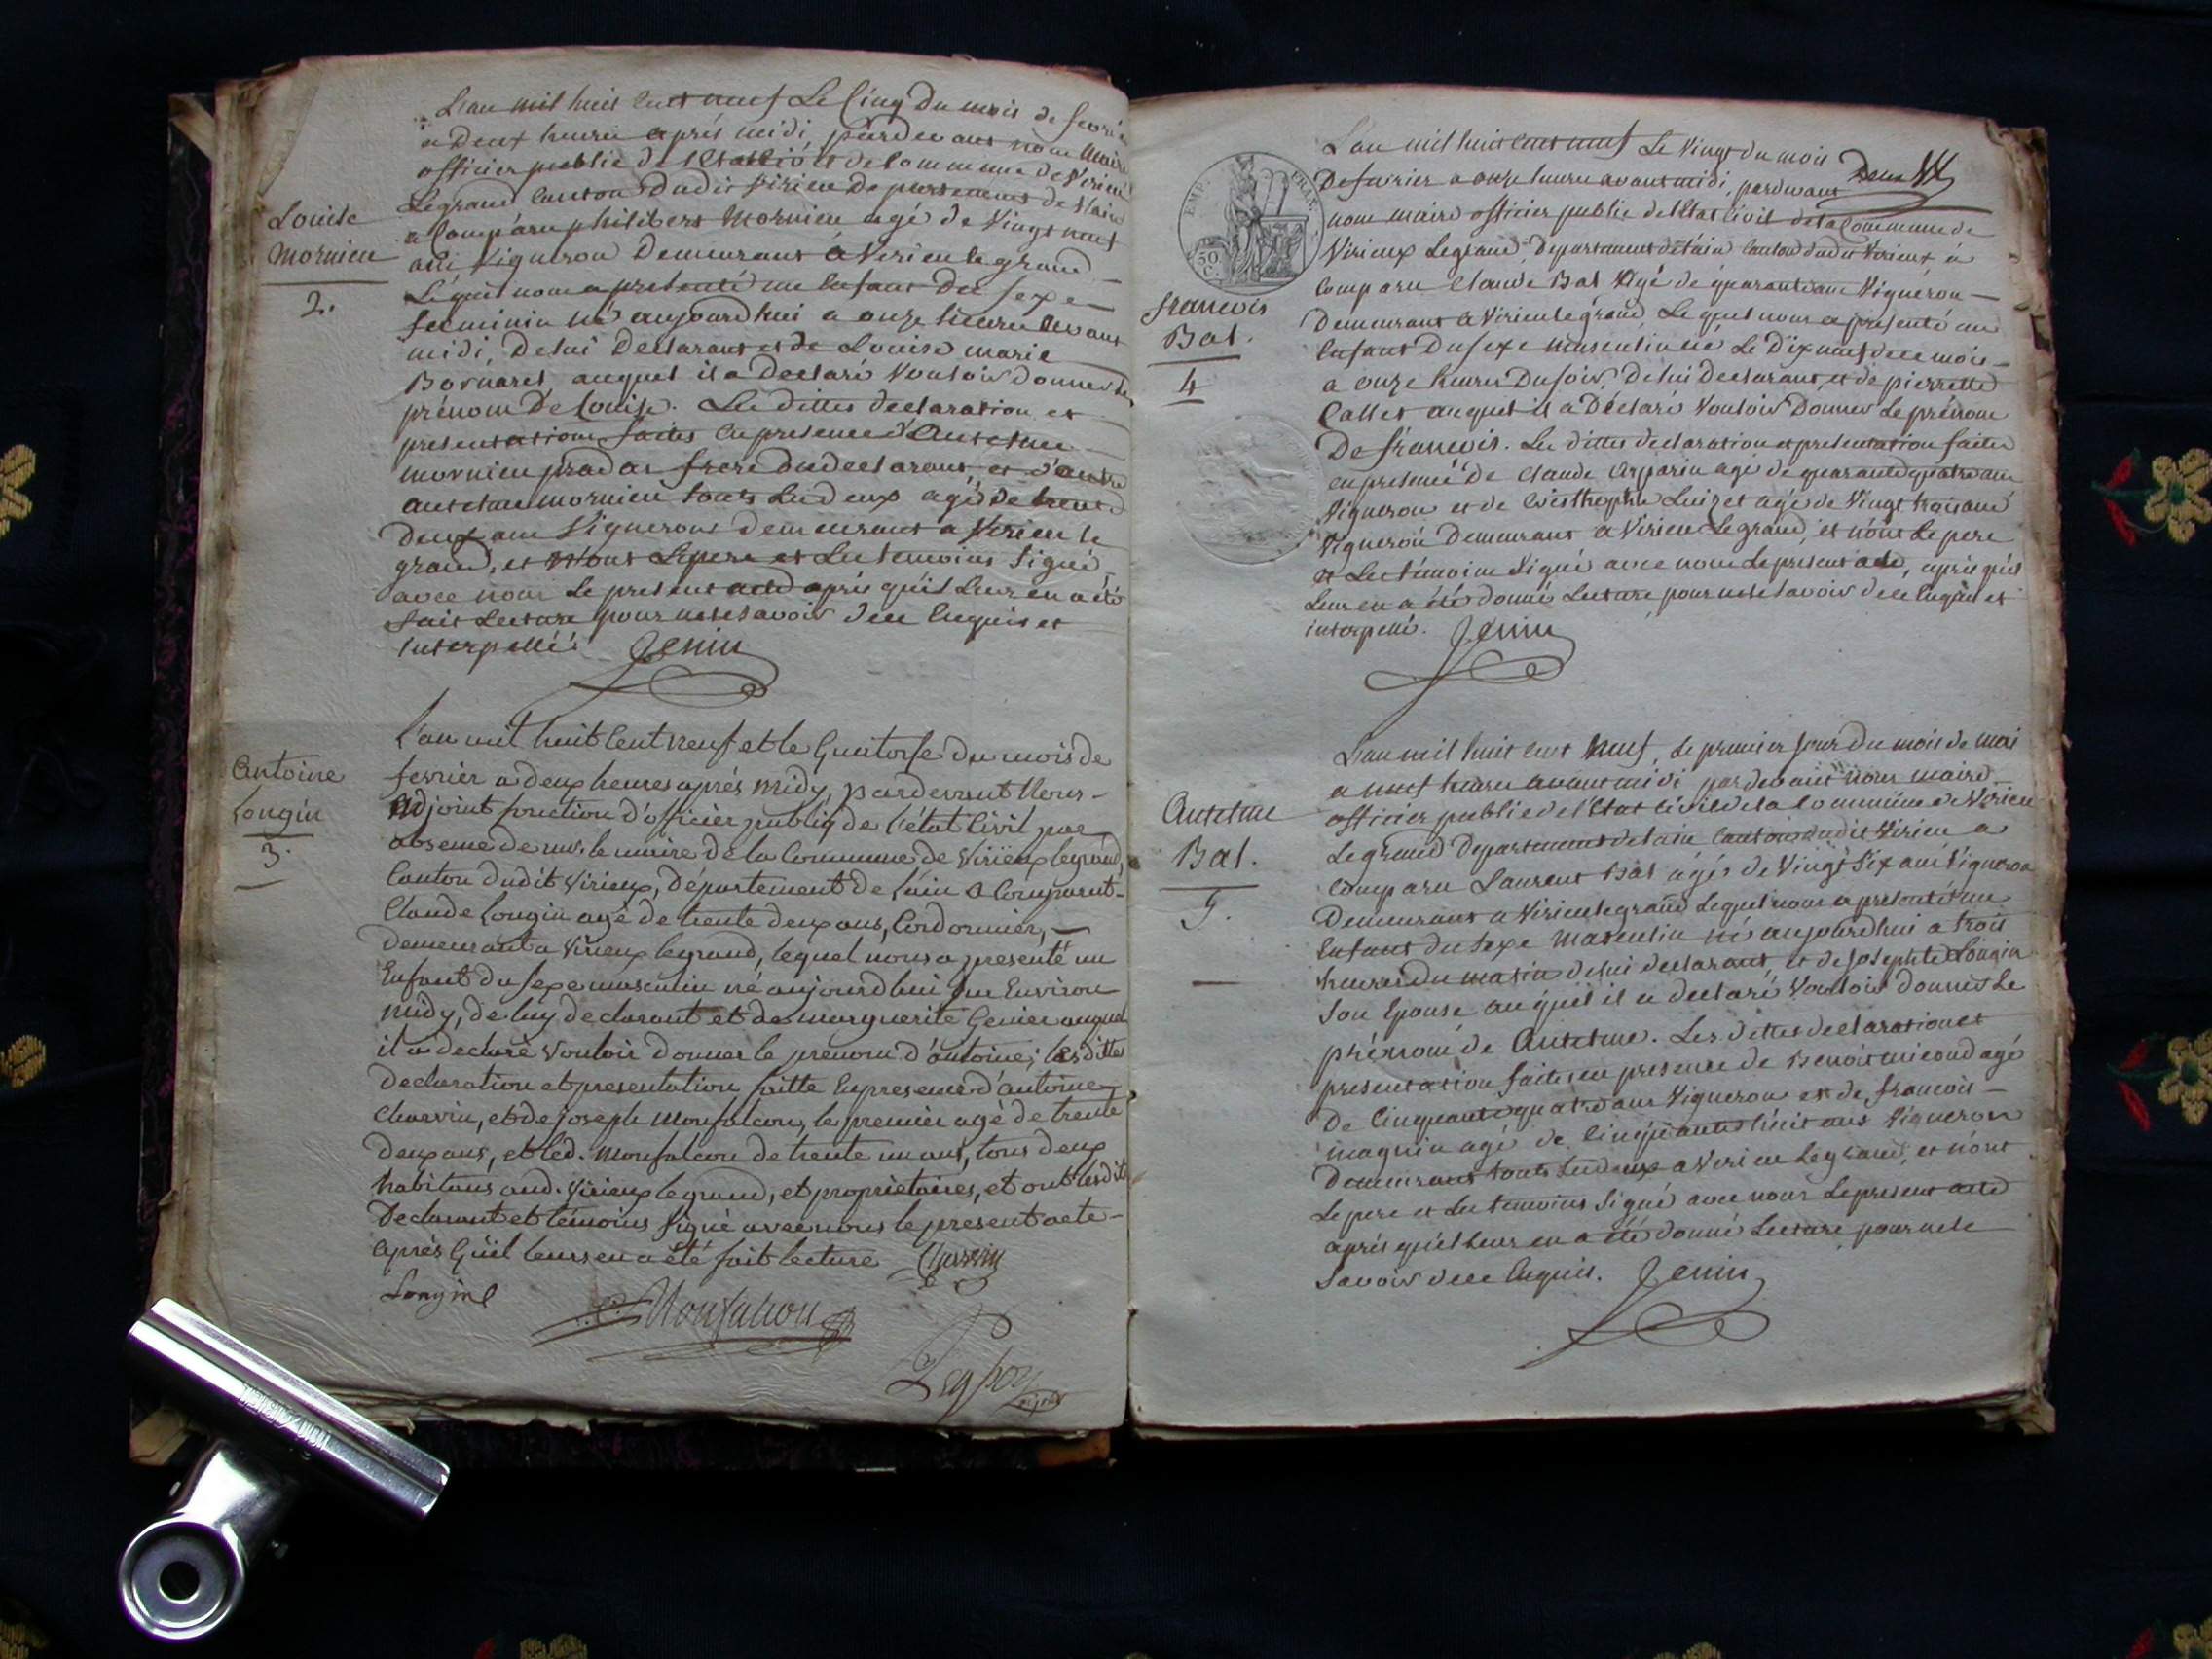 L'an mil huit cent neuf Le Cinq Du mois de fevrier
a Deux heures après midi, pardevant nous Maire
officier public de l'état Civil de la Commune de Virieu
Legrand Canton Dudit Virieu Departement de l'ain
a Comparu philibert Mornieu agé de Vingt neuf
ans Vigneron Demeurant à Virieu legrand
Lequel nous a presenté un Enfant Du sexe
feminin né aujourd'hui a onze heures avant
midi, De lui Declarant et de Louise marie
Bornarel, auquel il a Declaré Vouloir donner le
prénom De Louise. Les dittes declaration et
presentation faites en presence d'Antelme
mornieu pradat frere du declarant, et d'autre
antelme mornieu touts Les deux agés de trente
Deux ans Vignerons demeurant a Virieu le
grand, et N'ont Le pere et Les temoins signé
avec nous Le present acte après qu'il Leur en a été
fait Lecture pour ne le savoir de ce Enquis et
interpellés Jenin
Louise
Mornieu
2.
L'an mil huit Cent neuf et le Quatorse du mois de
fevrier a deux heures après midy, pardevant Nous
adjoint fonction d'officier publiq de l'état Civil par
absence de mr. le maire de la Commune de Virieux legrand,
Canton dudit Virieux, Département de l'ain a Comparut
Claude Longin agé de trente deux ans, Cordonnier,
demeurant a Virieux legrand, lequel nous a presenté un
Enfant du sexe masculin né aujourd'hui sur Environ
midy, de luy declarant et de marguerite Genier auquel
il a declaré vouloir donner le prenom d'antoine; les ditte
declaration et presentation faitte En presence d'antoine
Charvin, et de joseph Monfalcon, le premier agé de trente
deux ans, et led. Monfalcon de trente un ans, tous deux
habitans aud. Virieux legrand, et proprietaires, et ont lesdits
Declarant et témoins signé avec nous le present acte
après Qu'il leurs en a été fait lecture Charvin
Longin
Monfalcon
adjoint
Antoine
Longin
3.
Deux
L'an mil huit cent neuf Le Vingt du mois
De fevrier a onze heures avant midi, pardevant
nous maire officier public de l'Etat Civil de la Commune de
Virieux Legrand, Departement de l'ain Canton dudit Virieux à
Comparu Claude Bal Agé de quarante ans Vigneron
Demeurant a Virieu legrand Lequel nous a presenté un
Enfant Du sexe masculin né Le Dix neuf de ce mois
a onze heures Du soir, De lui declarant et de pierrette
Callet auquel il a Déclaré Vouloir Donner Le prénom
De francois. Les dittes declaration et presentation faites
en presence De Claude agé de quarante quatre ans
Vigneron et de Cristhophe Luizet agé de Vingt trois ans
Vigneron Demeurant a Virieu Legrand, et n'ont Le pere
et Les témoins signé avec nous Le present acte, après qu'il
Leur en a été donné Lecture pour ne le savoir de ce Enquis et
interpellé. Jenin
EMP. FRAN.
50 C.
francois
Bal.
4
L'an mil huit cent Neuf, Le premier jour Du mois de mai
a neuf heures avant midi pardevant nous maire
officier public de l'Etat Civil de la Commune de Virieu
Le grand Departement de l'ain Canton dudit Virieu a
Comparu Laurent Bal agés de Vingt Six ans Vigneron
Demeurant a Virieu legrand Lequel nous a presenté un
Enfant du sexe Masculin né aujourd'hui a trois
heures du matin de lui declarant, et de josephte Longin
Son Epouse auquel il a declaré Vouloir donner Le
prénom de Antelme. Les dittes declaration et
presentation faites en presence de Benoit micoud agé
De Cinquante quatre ans Vigneron et de francois
maguin agé de Cinquante huit ans Vigneron
Demeurant touts Les deux a Virieu Legrand, et n'ont
Le pere et Les temoins Signé avec nous Le present acte
après qu'il Leur en a été donné Lecture pour ne le
Savoir de ce Enquis. Jenin
Antelme
Bal.
5.